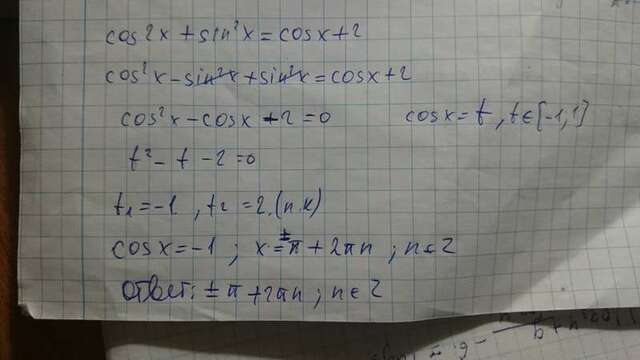 cos2x + sin²x = cosx + 2
cos²x - sin²x + sin²x = cosx + 2
cos²x - cosx - 2 = 0 cosx = t, t ∈ [-1, 1]
t² - t - 2 = 0
t₁ = -1, t₂ = 2 (п.к)
cosx = -1 ; x = ±π + 2πn ; n ∈ Z
ответ: ± π + 2πn ; n ∈ Z